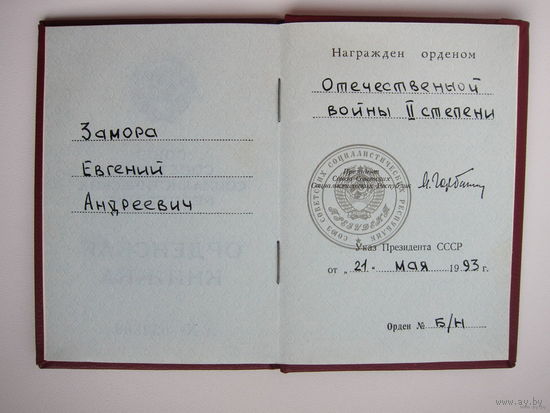 Замора
Евгений
Андреевич
Награжден орденом
Отечественной
войны II степени
Президент
Союза Советских
Социалистических Республик
СОЮЗ СОВЕТСКИХ СОЦИАЛИСТИЧЕСКИХ РЕСПУБЛИК
ПРЕЗИДЕНТ
М. Горбачев
Указ Президента СССР
от „ 21 " мая 1993 г.
Орден № Б/Н
www.ay.by